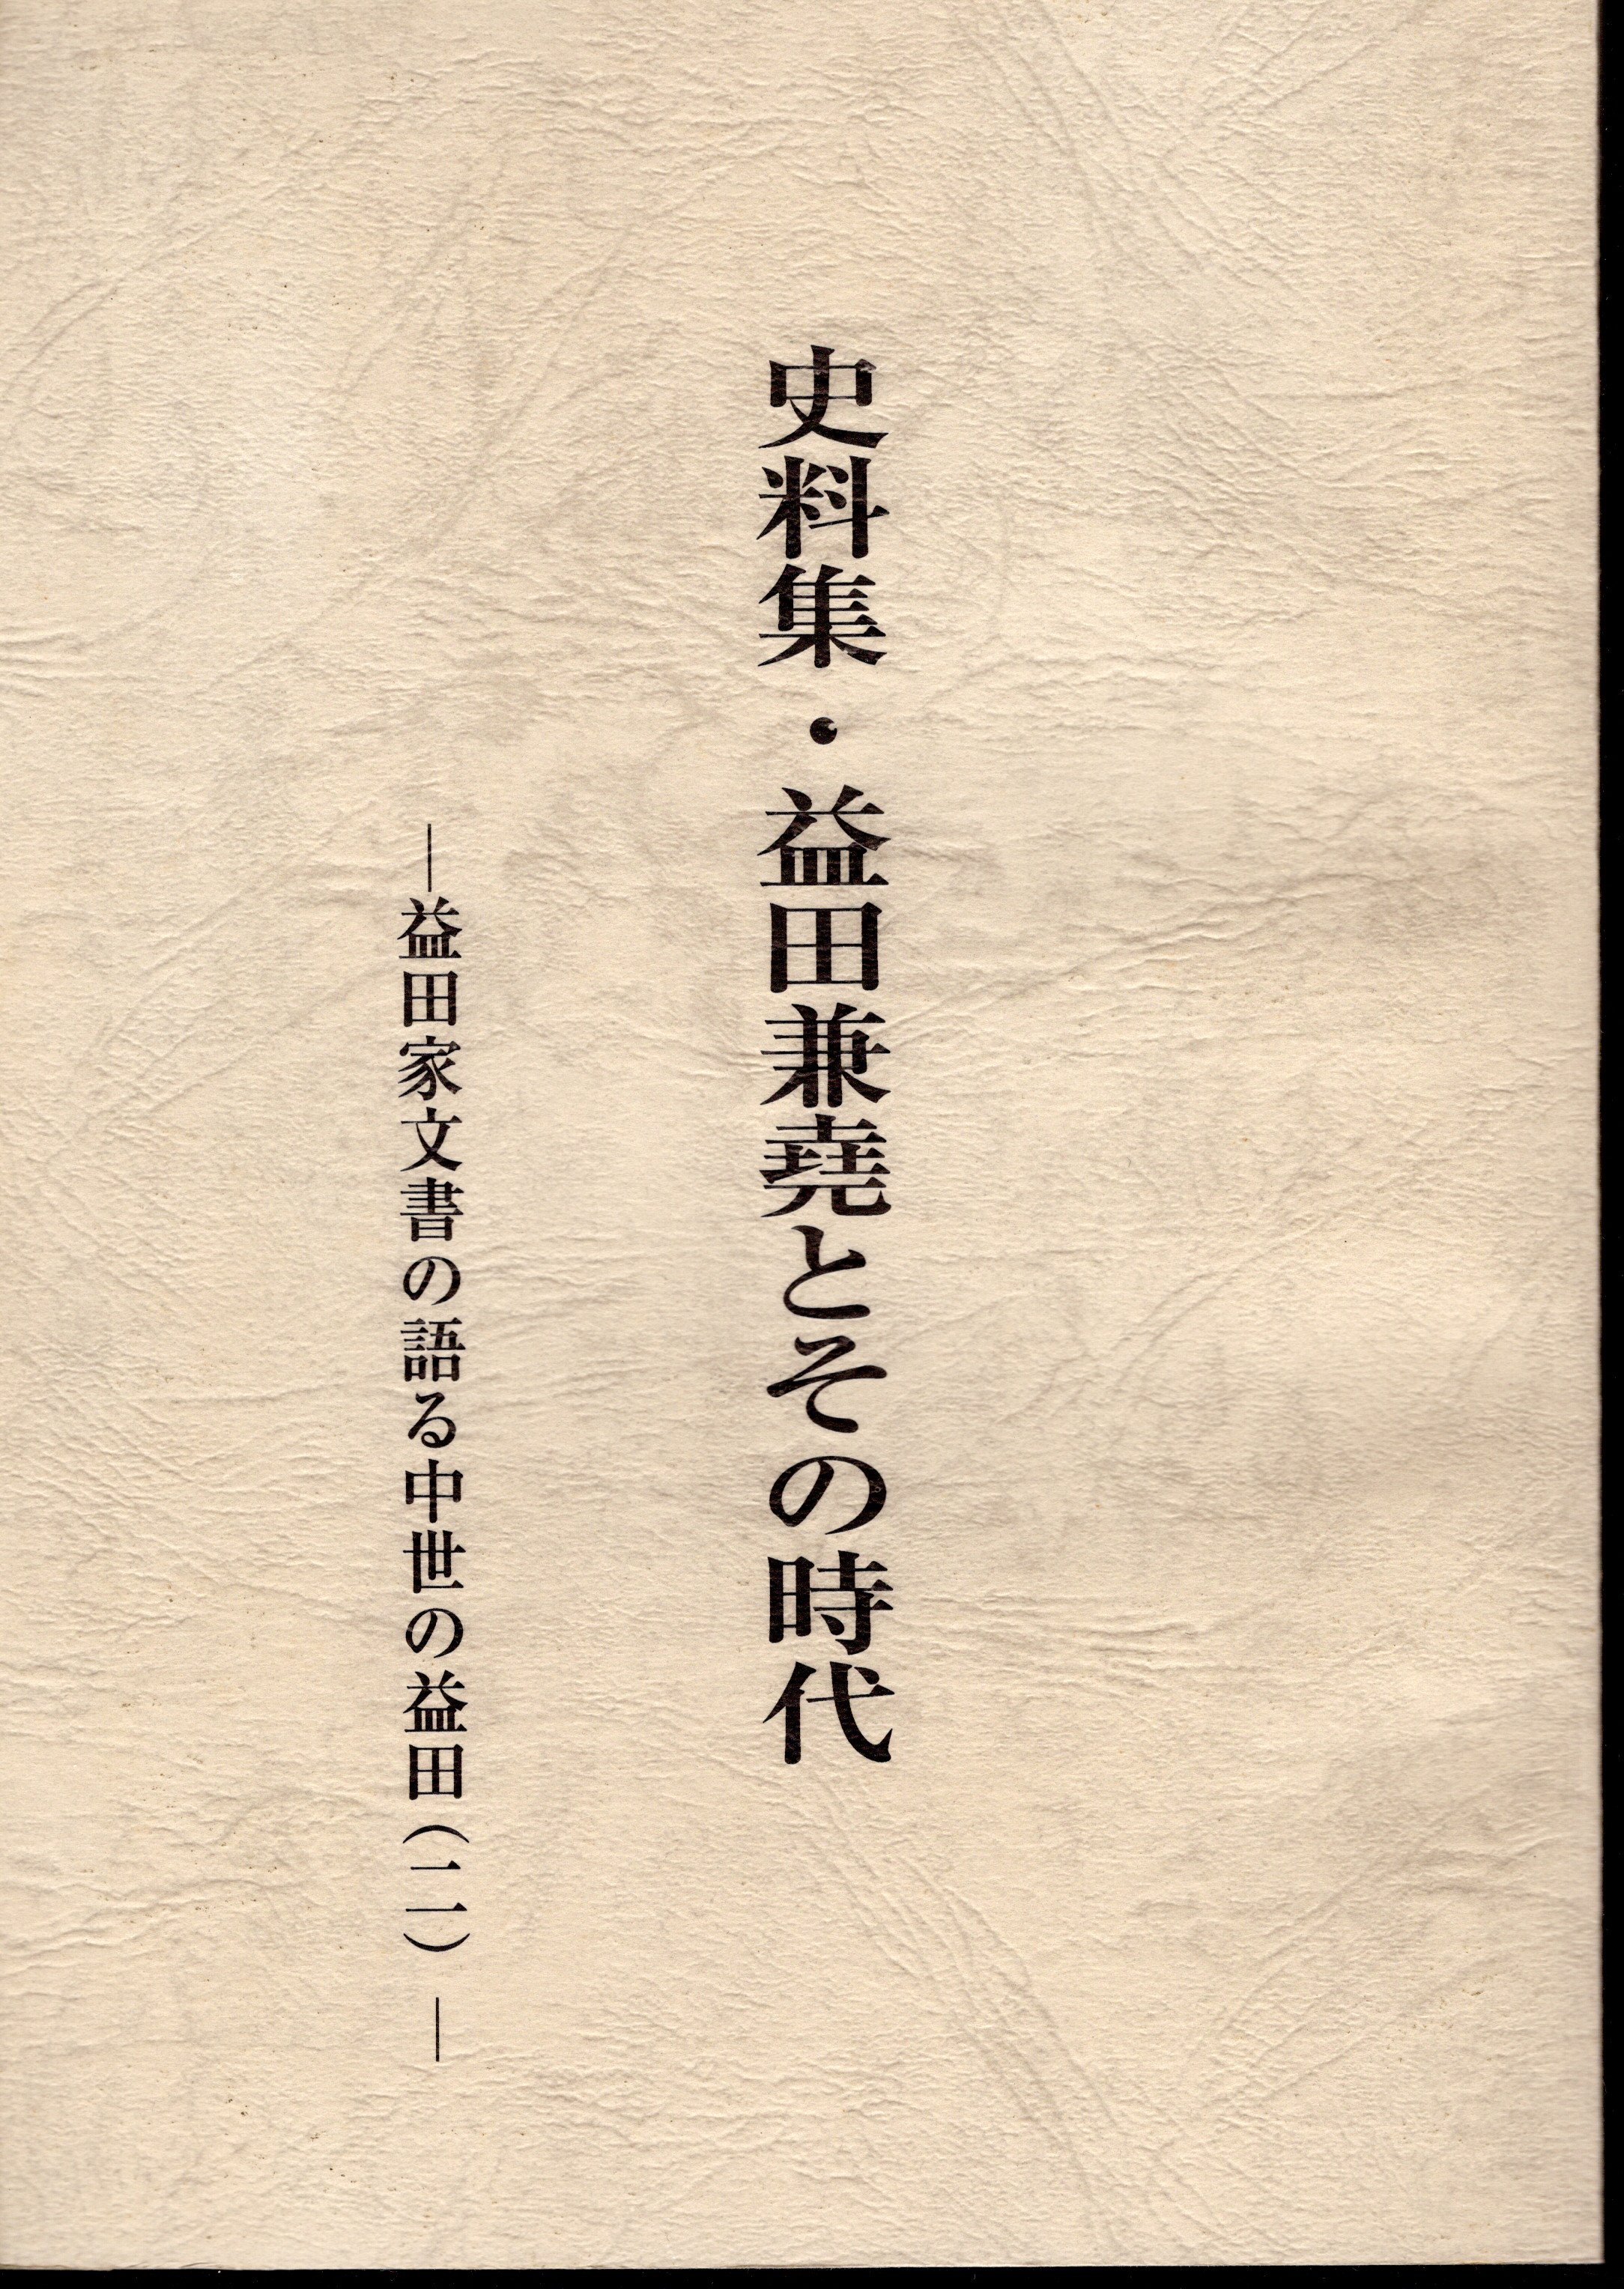 史料集・益田兼堯とその時代
―益田家文書の語る中世の益田（二）―